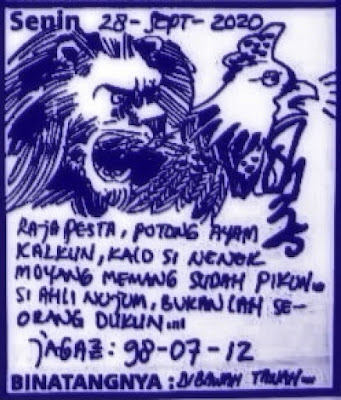 Senin 28-SEPT-2020
RAJA PESTA, POTONG AYAM
KALKUN, KALO SI NENEK
MOYANG MEMANG SUDAH PIKUN..
SI AHLI NUJUM, BUKANLAH SE-
ORANG DUKUN...
JAGA2: 98-07-12
BINATANGNYA: DIBAWAH TANAH...